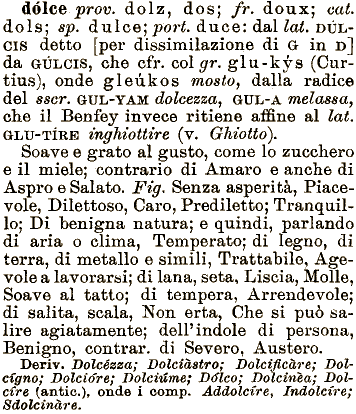 dólce prov. dolz, dos; fr. doux; cat.
dols; sp. dulce; port. duce: dal lat. DÚL-
CIS detto [per dissimilazione di G in D]
da GÚLCIS, che cfr. col gr. glu-kýs (Cur-
tius), onde gleûkos mosto, dalla radice
del sscr. GUL-YAM dolcezza, GUL-A melassa,
che il Benfey invece ritiene affine al lat.
GLU-TÍRE inghiottire (v. Ghiotto).
Soave e grato al gusto, come lo zucchero
e il miele; contrario di Amaro e anche di
Aspro e Salato. Fig. Senza asperità, Piace-
vole, Dilettoso, Caro, Prediletto; Tranquil-
lo; Di benigna natura; e quindi, parlando
di aria o clima, Temperato; di legno, di
terra, di metallo e simili, Trattabile, Age-
vole a lavorarsi; di lana, seta, Liscia, Molle,
Soave al tatto; di tempera, Arrendevole;
di salita, scala, Non erta, Che si può sa-
lire agiatamente; dell'indole di persona,
Benigno, contrar. di Severo, Austero.
Deriv. Dolcézza; Dolciàstro; Dolcificàre; Dol-
cígno; Dolcióre; Dolciúme; Dólco; Dolcinèa; Dol-
círe (antic.), onde i comp. Addolcíre, Indolcíre;
Sdolcinàre.